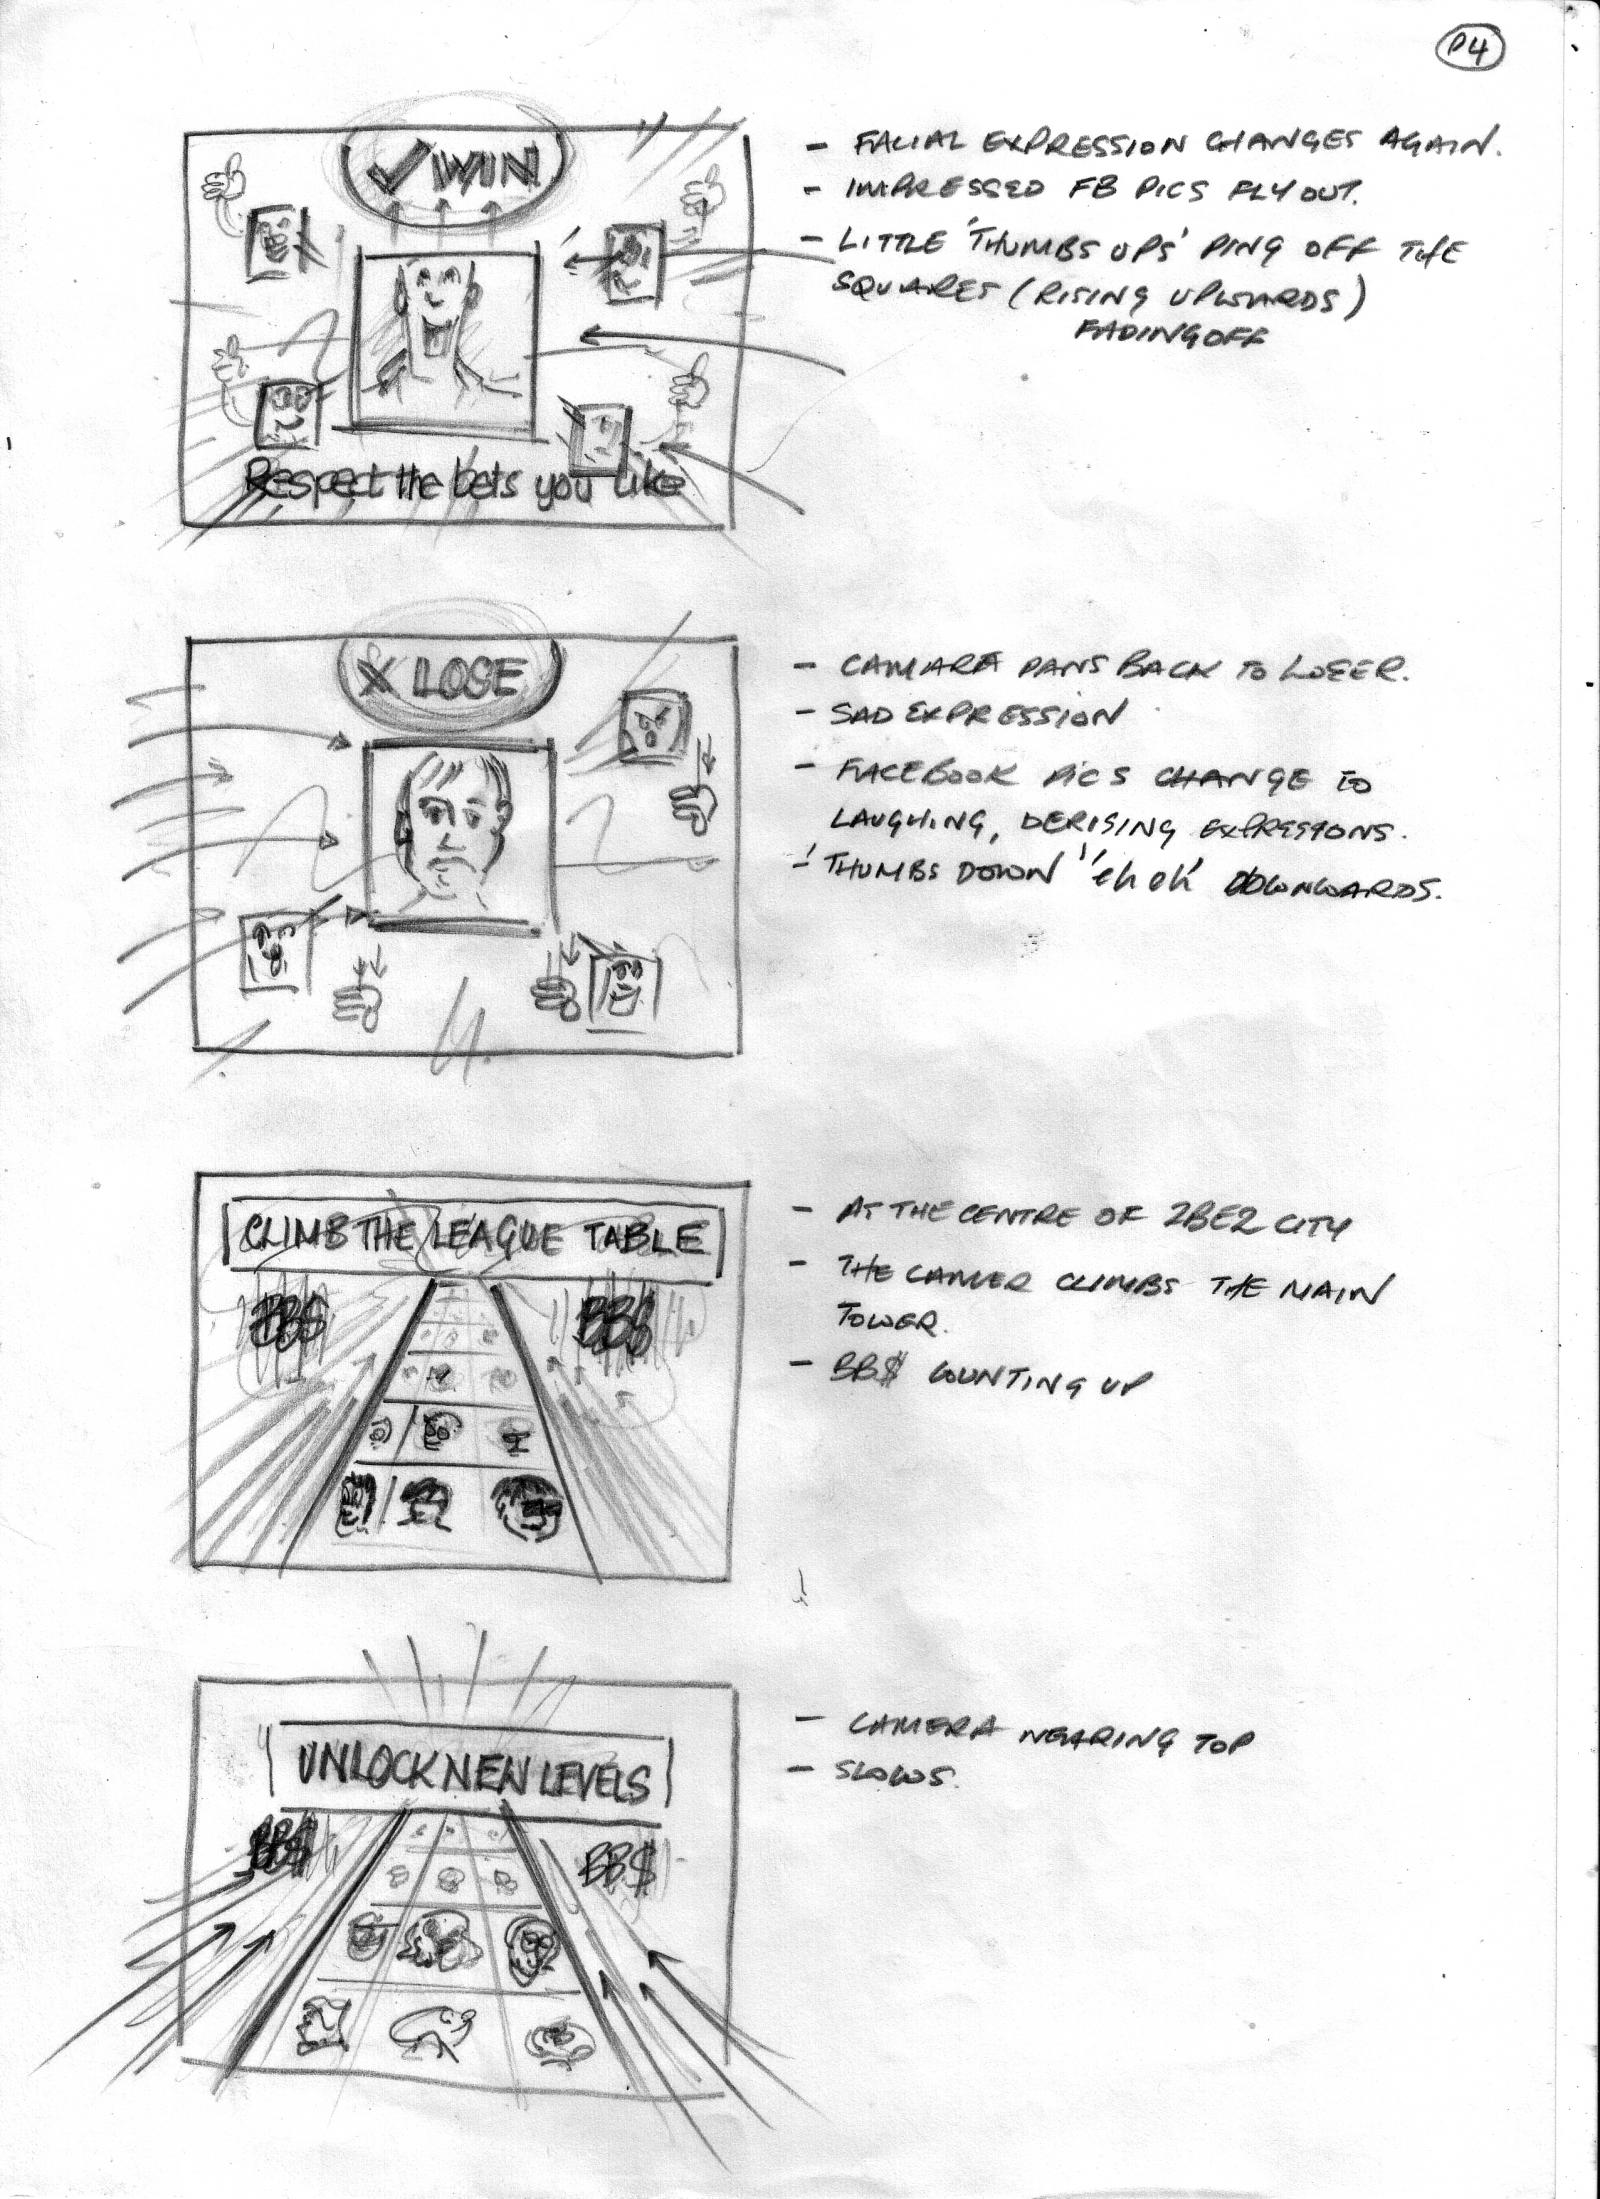 P4
✓ WIN
Respect the bets you like
- FACIAL EXPRESSION CHANGES AGAIN.
- IMPRESSED FB PICS FLY OUT.
- LITTLE 'THUMBS UPS' PING OFF THE
SQUARES (RISING UPWARDS)
FADING OFF
X LOSE
- CAMARA PANS BACK TO LOSER.
- SAD EXPRESSION
- FACEBOOK PICS CHANGE TO
LAUGHING, DERISING EXPRESSIONS.
- 'THUMBS DOWN' DOWNWARDS.
CLIMB THE LEAGUE TABLE
BB$ BB$
- AT THE CENTRE OF 2BE2 CITY
- THE CAMER CLIMBS THE MAIN
TOWER.
- BB$ COUNTING UP
UNLOCK NEW LEVELS
BB$ BB$
- CAMERA NEARING TOP
- SLOWS.